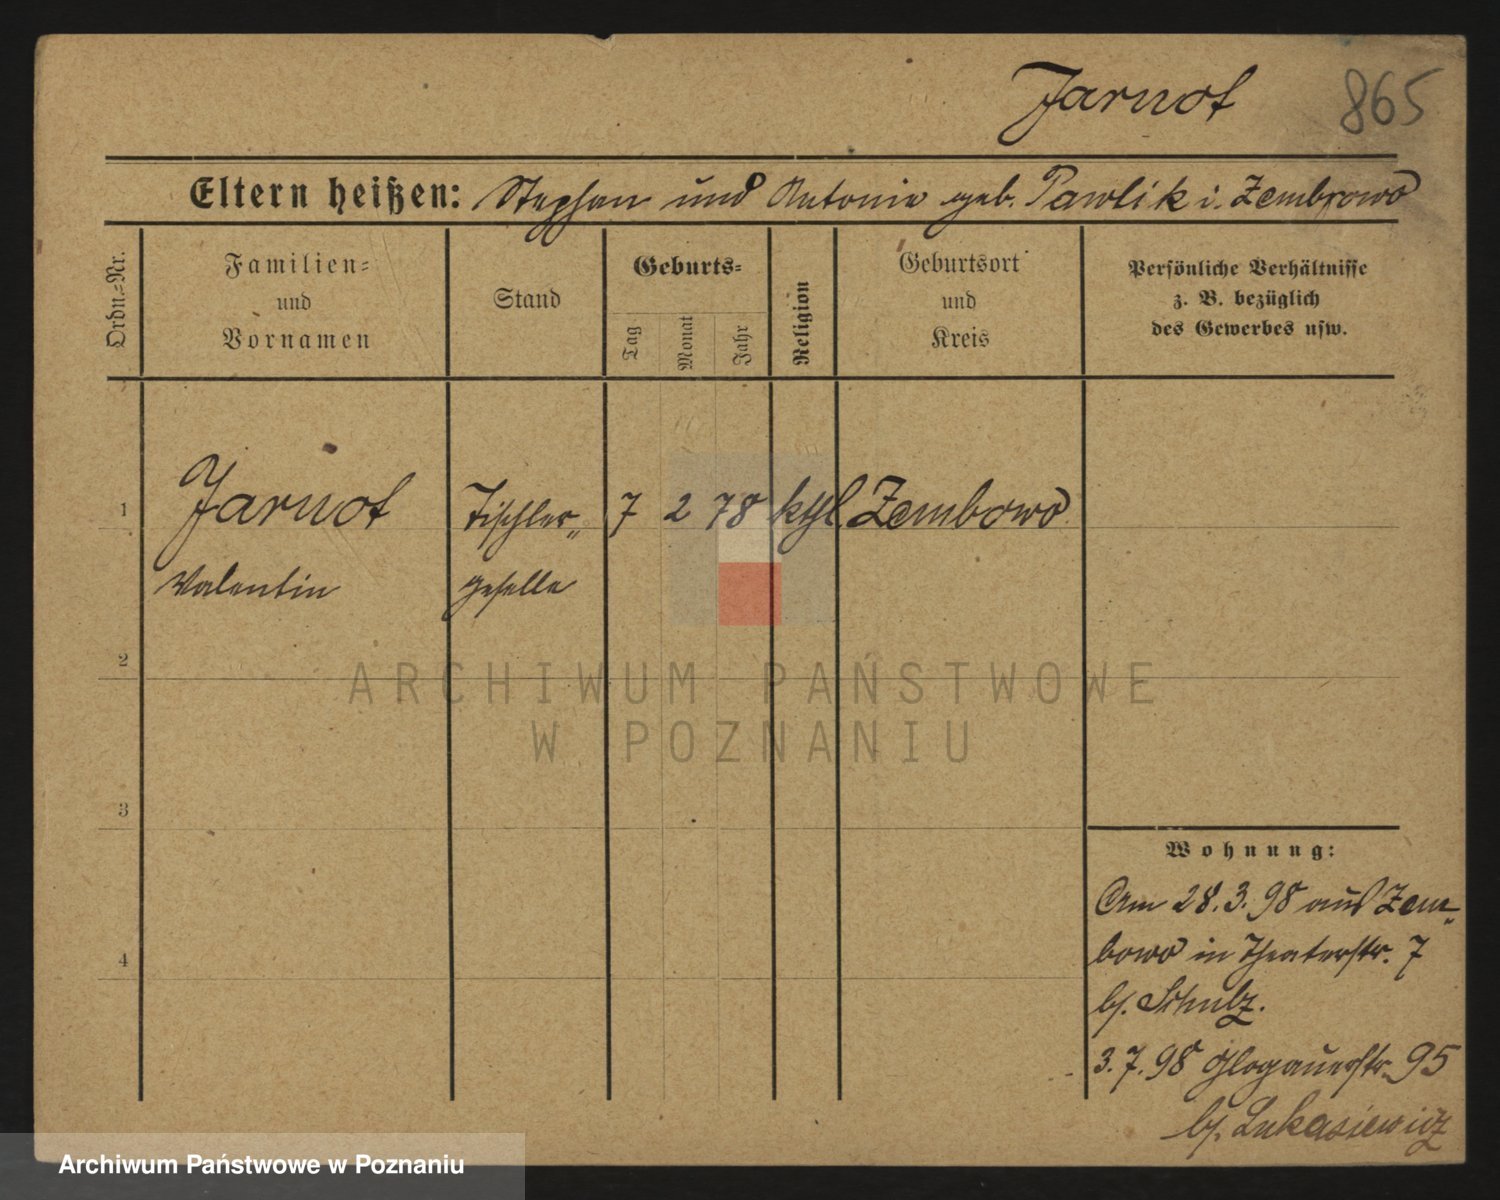 Jarnot 865
Eltern heißen: Stephan und Antonie geb. Pawlik i. Zembrowo
Ordn.=Nr.
Familien=
und
Vornamen
Stand
Geburts=
Tag
Monat
Jahr
Religion
Geburtsort
und
Kreis
Persönliche Verhältnisse
z. B. bezüglich
des Gewerbes usw.
1 Jarnot Tischler= 7 2 78 kthl. Zembowo
Valentin geselle
2
ARCHIWUM PAŃSTWOWE
W POZNANIU
3
Wohnung:
Am 28.3.98 aus Zem=
bowo in Theaterstr. 7
4
b/. Schulz.
3.7.98 Glogauerstr. 95
b/. Lukasiewicz
Archiwum Państwowe w Poznaniu